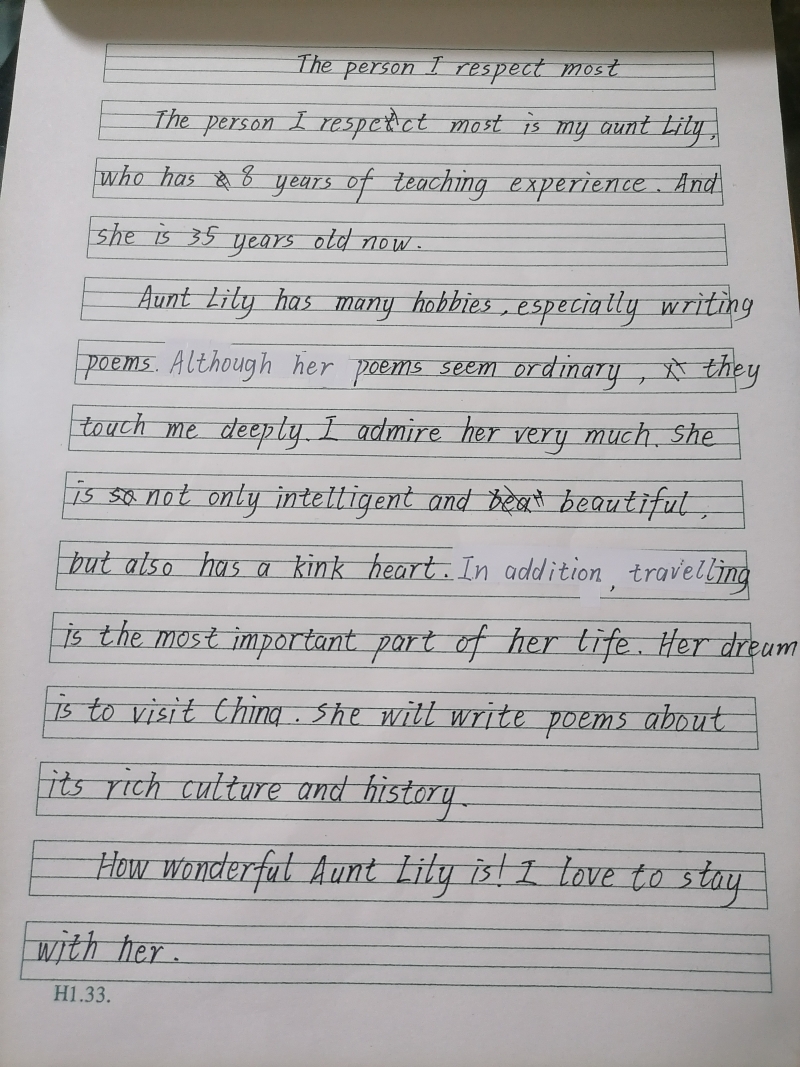 The person I respect most
The person I respect most is my aunt Lily,
who has 8 years of teaching experience. And
she is 35 years old now.
Aunt Lily has many hobbies, especially writing
poems. Although her poems seem ordinary, they
touch me deeply. I admire her very much. She
is not only intelligent and beautiful,
but also has a kink heart. In addition, travelling
is the most important part of her life. Her dream
is to visit China. She will write poems about
its rich culture and history.
How wonderful Aunt Lily is! I love to stay
with her.
H1.33.